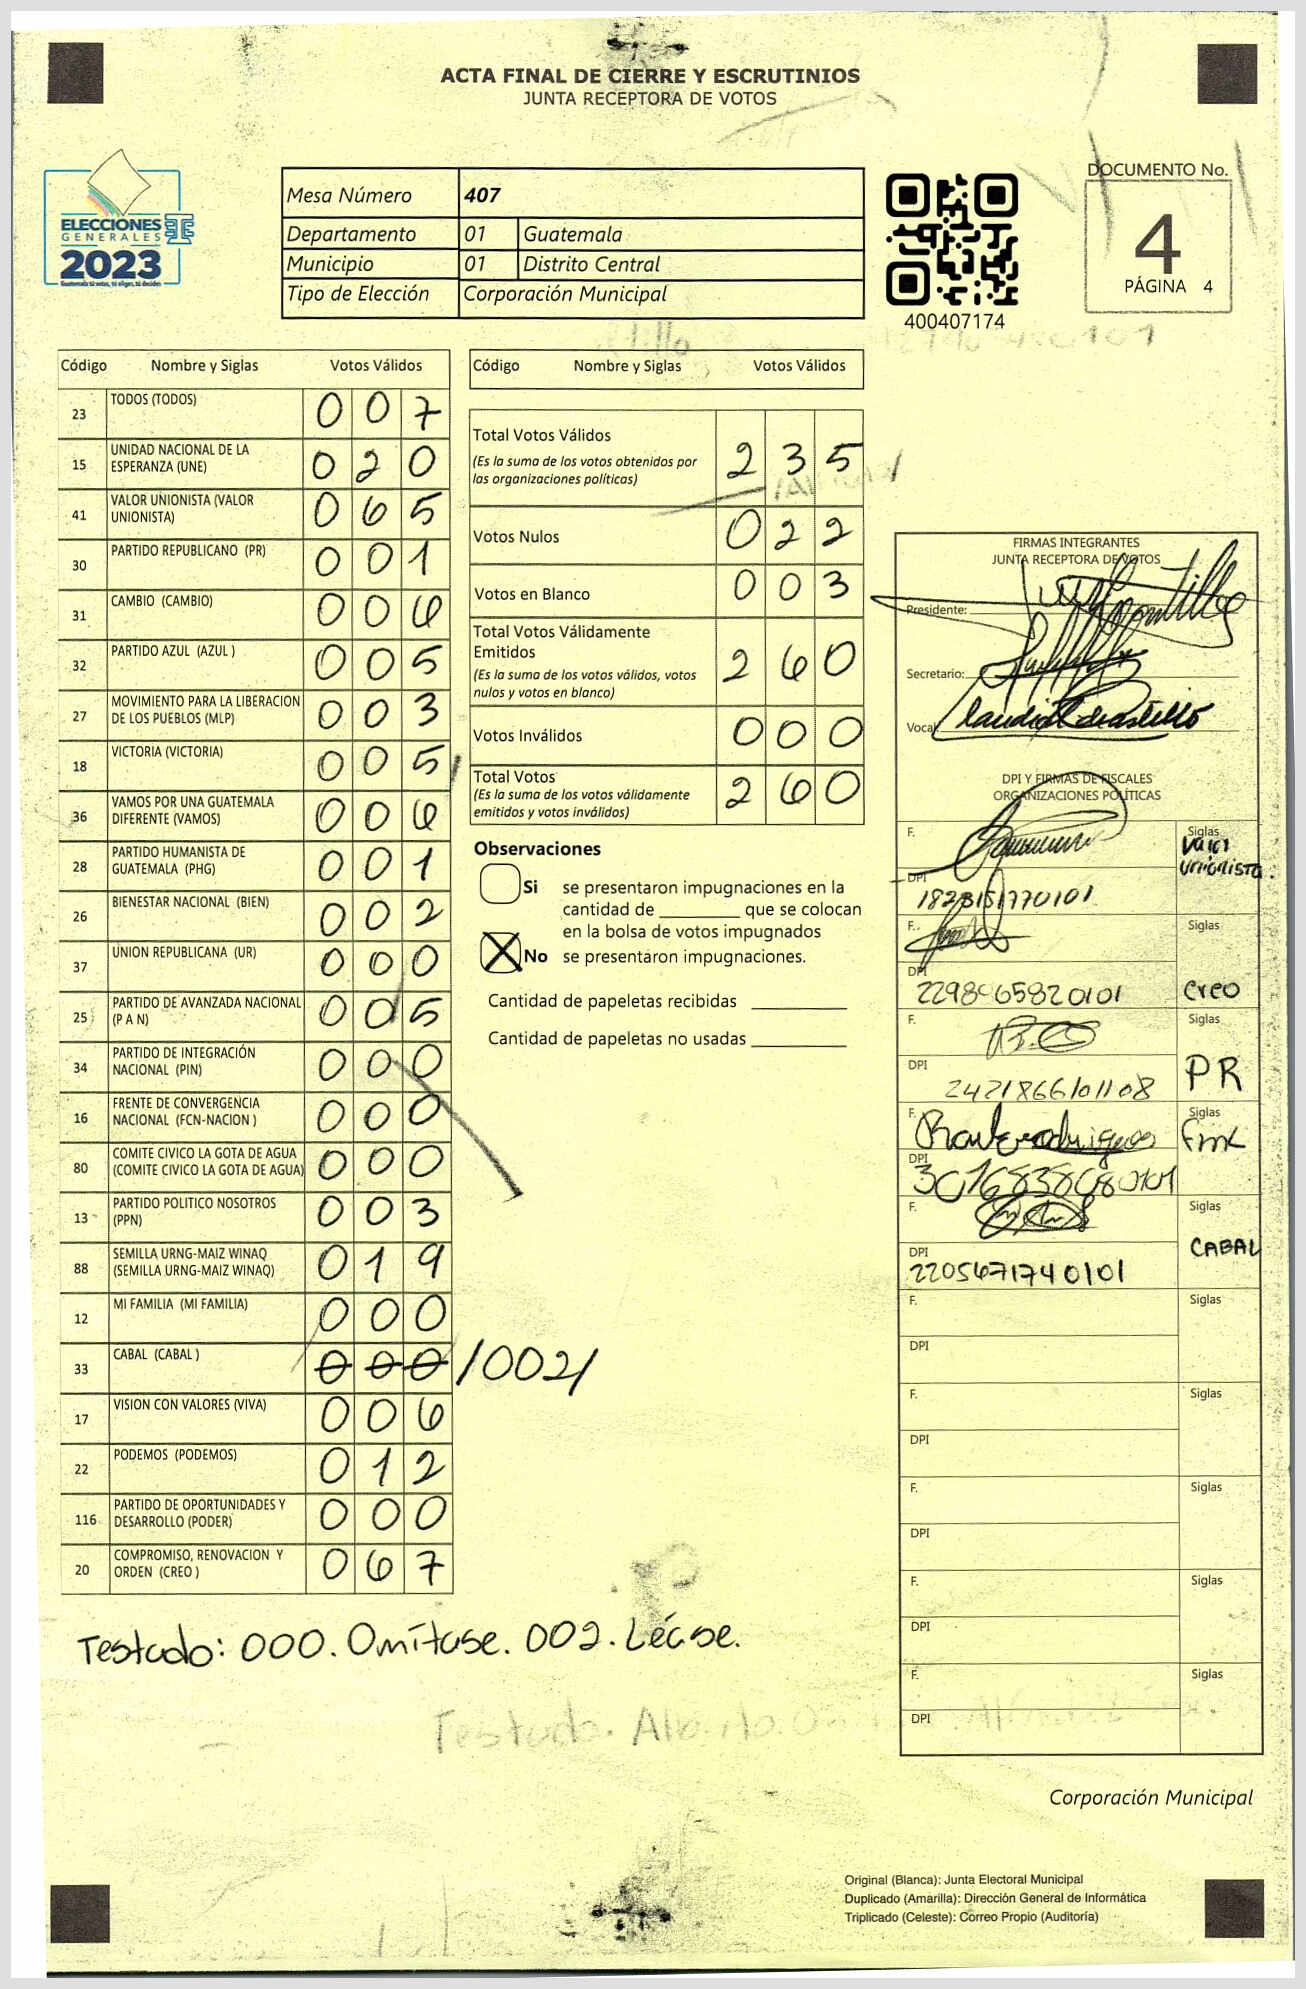 ACTA FINAL DE CIERRE Y ESCRUTINIOS
JUNTA RECEPTORA DE VOTOS
ELECCIONES
GENERALES
2023
Guatemala tú votas, tú eliges, tú decides
Mesa Número 407
Departamento 01 Guatemala
Municipio 01 Distrito Central
Tipo de Elección Corporación Municipal
400407174
DOCUMENTO No.
4
PÁGINA 4
Código Nombre y Siglas Votos Válidos
23 TODOS (TODOS) 0 0 7
15 UNIDAD NACIONAL DE LA ESPERANZA (UNE) 0 2 0
41 VALOR UNIONISTA (VALOR UNIONISTA) 0 6 5
30 PARTIDO REPUBLICANO (PR) 0 0 1
31 CAMBIO (CAMBIO) 0 0 6
32 PARTIDO AZUL (AZUL ) 0 0 5
27 MOVIMIENTO PARA LA LIBERACION DE LOS PUEBLOS (MLP) 0 0 3
18 VICTORIA (VICTORIA) 0 0 5
36 VAMOS POR UNA GUATEMALA DIFERENTE (VAMOS) 0 0 6
28 PARTIDO HUMANISTA DE GUATEMALA (PHG) 0 0 1
26 BIENESTAR NACIONAL (BIEN) 0 0 2
37 UNION REPUBLICANA (UR) 0 0 0
25 PARTIDO DE AVANZADA NACIONAL (P A N) 0 0 5
34 PARTIDO DE INTEGRACIÓN NACIONAL (PIN) 0 0 0
16 FRENTE DE CONVERGENCIA NACIONAL (FCN-NACION ) 0 0 0
80 COMITE CIVICO LA GOTA DE AGUA (COMITE CIVICO LA GOTA DE AGUA) 0 0 0
13 PARTIDO POLITICO NOSOTROS (PPN) 0 0 3
88 SEMILLA URNG-MAIZ WINAQ (SEMILLA URNG-MAIZ WINAQ) 0 1 9
12 MI FAMILIA (MI FAMILIA) 0 0 0
33 CABAL (CABAL ) 0 0 0 /002/
17 VISION CON VALORES (VIVA) 0 0 6
22 PODEMOS (PODEMOS) 0 1 2
116 PARTIDO DE OPORTUNIDADES Y DESARROLLO (PODER) 0 0 0
20 COMPROMISO, RENOVACION Y ORDEN (CREO ) 0 6 7
Testado: 000. Omítase. 002. Léase.
Código Nombre y Siglas Votos Válidos
Total Votos Válidos 2 3 5
(Es la suma de los votos obtenidos por
las organizaciones políticas)
Votos Nulos 0 2 2
Votos en Blanco 0 0 3
Total Votos Válidamente
Emitidos 2 6 0
(Es la suma de los votos válidos, votos
nulos y votos en blanco)
Votos Inválidos 0 0 0
Total Votos 2 6 0
(Es la suma de los votos válidamente
emitidos y votos inválidos)
Observaciones
Si se presentaron impugnaciones en la
cantidad de ________ que se colocan
en la bolsa de votos impugnados
No se presentaron impugnaciones.
Cantidad de papeletas recibidas
Cantidad de papeletas no usadas
FIRMAS INTEGRANTES
JUNTA RECEPTORA DE VOTOS
Presidente:
Secretario:
Vocal:
DPI Y FIRMAS DE FISCALES
ORGANIZACIONES POLÍTICAS
F. Siglas
Unionista.
DPI
F. Siglas
DPI
Creo
F. Siglas
DPI 2421866101108 PR
F. Siglas
DPI
F. Siglas
CABAL
DPI
2205671740101
F. Siglas
DPI
F. Siglas
DPI
F. Siglas
DPI
F. Siglas
DPI
F. Siglas
DPI
Testado.
Corporación Municipal
Original (Blanca): Junta Electoral Municipal
Duplicado (Amarilla): Dirección General de Informática
Triplicado (Celeste): Correo Propio (Auditoría)